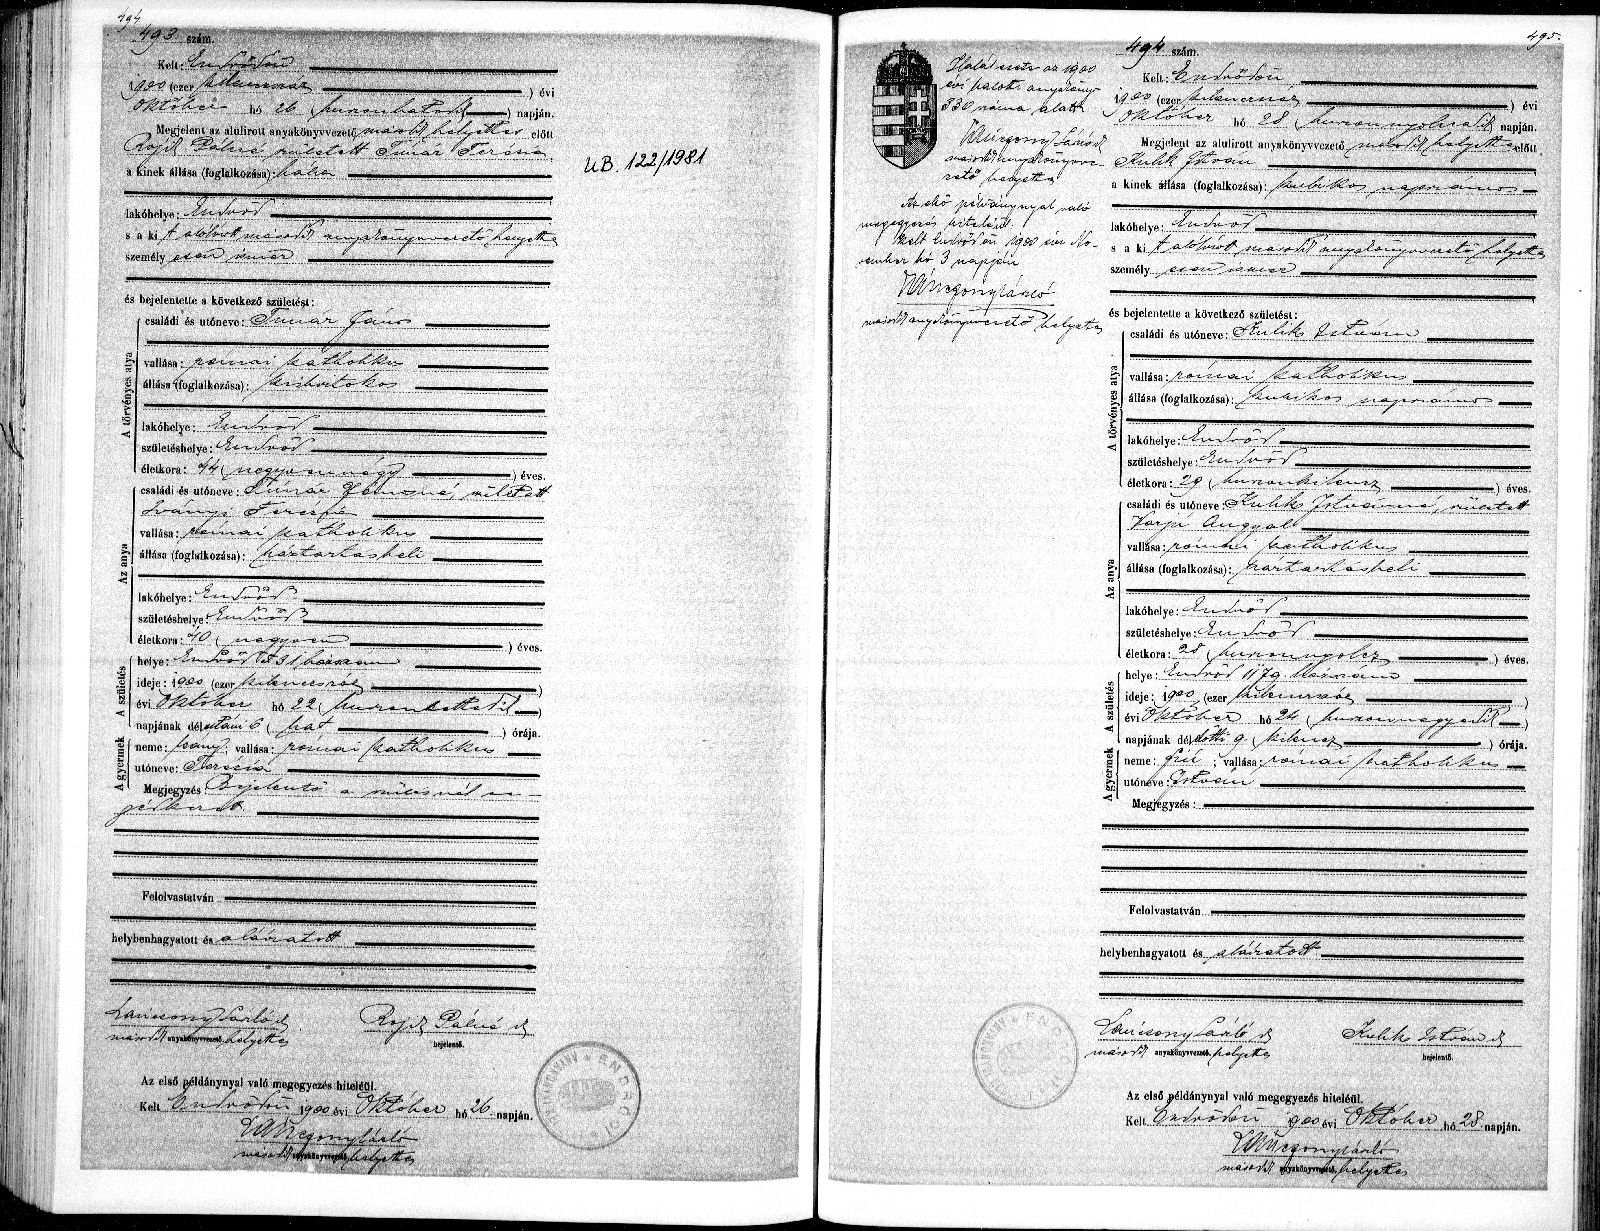 494
493 szám.
Kelt: Endrődön
1900 (ezer kilenczszáz) évi
Október hó 26 (huszonhatodik) napján.
Megjelent az alulirott anyakönyvvezető másodh helyettes előtt
Rojik Pálné született Tímár Terézia
a kinek állása (foglalkozása): bába
lakóhelye: Endrőd
s a ki t alólírott másodh anyakönyvvezető helyettes
személyesen ismer
és bejelentette a következő születést:
A törvényes atya
családi és utóneve: Tímár János
vallása: római katholikus
állása (foglalkozása): kisbirtokos
lakóhelye: Endrőd
születéshelye: Endrőd
életkora: 44 (negyvennégy) éves.
Az anya
családi és utóneve: Tímár Jánosné, született
Iványi Terézia
vallása: római katholikus
állása (foglalkozása): háztartásbeli
lakóhelye: Endrőd
születéshelye: Endrőd
életkora: 40 (negyven) éves.
A születés
helye: Endrőd 531 házszám
ideje: 1900 (ezer kilenczszáz)
évi Október hó 22 (huszonkettedik)
napjának délutáni 6 (hat) órája.
A gyermek
neme: leány; vallása: római katholikus
utóneve: Terézia
Megjegyzés Bejelentő a szülésnél se-
gédkezett
Felolvastatván
helybenhagyatott és aláíratott
Lancsony László s k
másodh anyakönyvvezető helyettes
Rojik Pálné s k
bejelentő.
Az első példánynyal való megegyezés hiteléül.
Kelt Endrődön 1900 évi Október hó 26 napján.
másodh anyakönyvvezető helyettes
UB. 122/1981
495.
Halál esete az 1900
évi halotti anyakönyv
530 száma alatt
másodh anyakönyvve-
zető helyettes
Az első példánynyal való
megegyezés hiteléül.
Kelt Endrődön 1900 évi No-
vember hó 3 napján
másodh anyakönyvvezető helyettes
494 szám.
Kelt: Endrődön
1900 (ezer kilenczszáz) évi
Október hó 28 (huszonnyolczadik) napján.
Megjelent az alulirott anyakönyvvezető másodh helyettes előtt
Kulik István
a kinek állása (foglalkozása): kubikos napszámos
lakóhelye: Endrőd
s a ki t alólírott másodh anyakönyvvezető helyettes
személyesen ismer
és bejelentette a következő születést:
A törvényes atya
családi és utóneve: Kulik István
vallása: római katholikus
állása (foglalkozása): kubikos napszámos
lakóhelye: Endrőd
születéshelye: Endrőd
életkora: 29 (huszonkilencz) éves.
Az anya
családi és utóneve: Kulik Istvánné, született
Varjú Angyal
vallása: római katholikus
állása (foglalkozása): háztartásbeli
lakóhelye: Endrőd
születéshelye: Endrőd
életkora: 28 (huszonnyolcz) éves.
A születés
helye: Endrőd 1179 házszám
ideje: 1900 (ezer kilenczszáz)
évi Október hó 24 (huszonnegyedik)
napjának délelőtti 9 (kilencz) órája.
A gyermek
neme: fiú; vallása: római katholikus
utóneve: István
Megjegyzés:
Felolvastatván
helybenhagyatott és aláíratott
Lancsony László s k
másodh anyakönyvvezető helyettes
Kulik István s k
bejelentő.
Az első példánynyal való megegyezés hiteléül.
Kelt Endrődön 1900 évi Október hó 28 napján.
másodh anyakönyvvezető helyettes